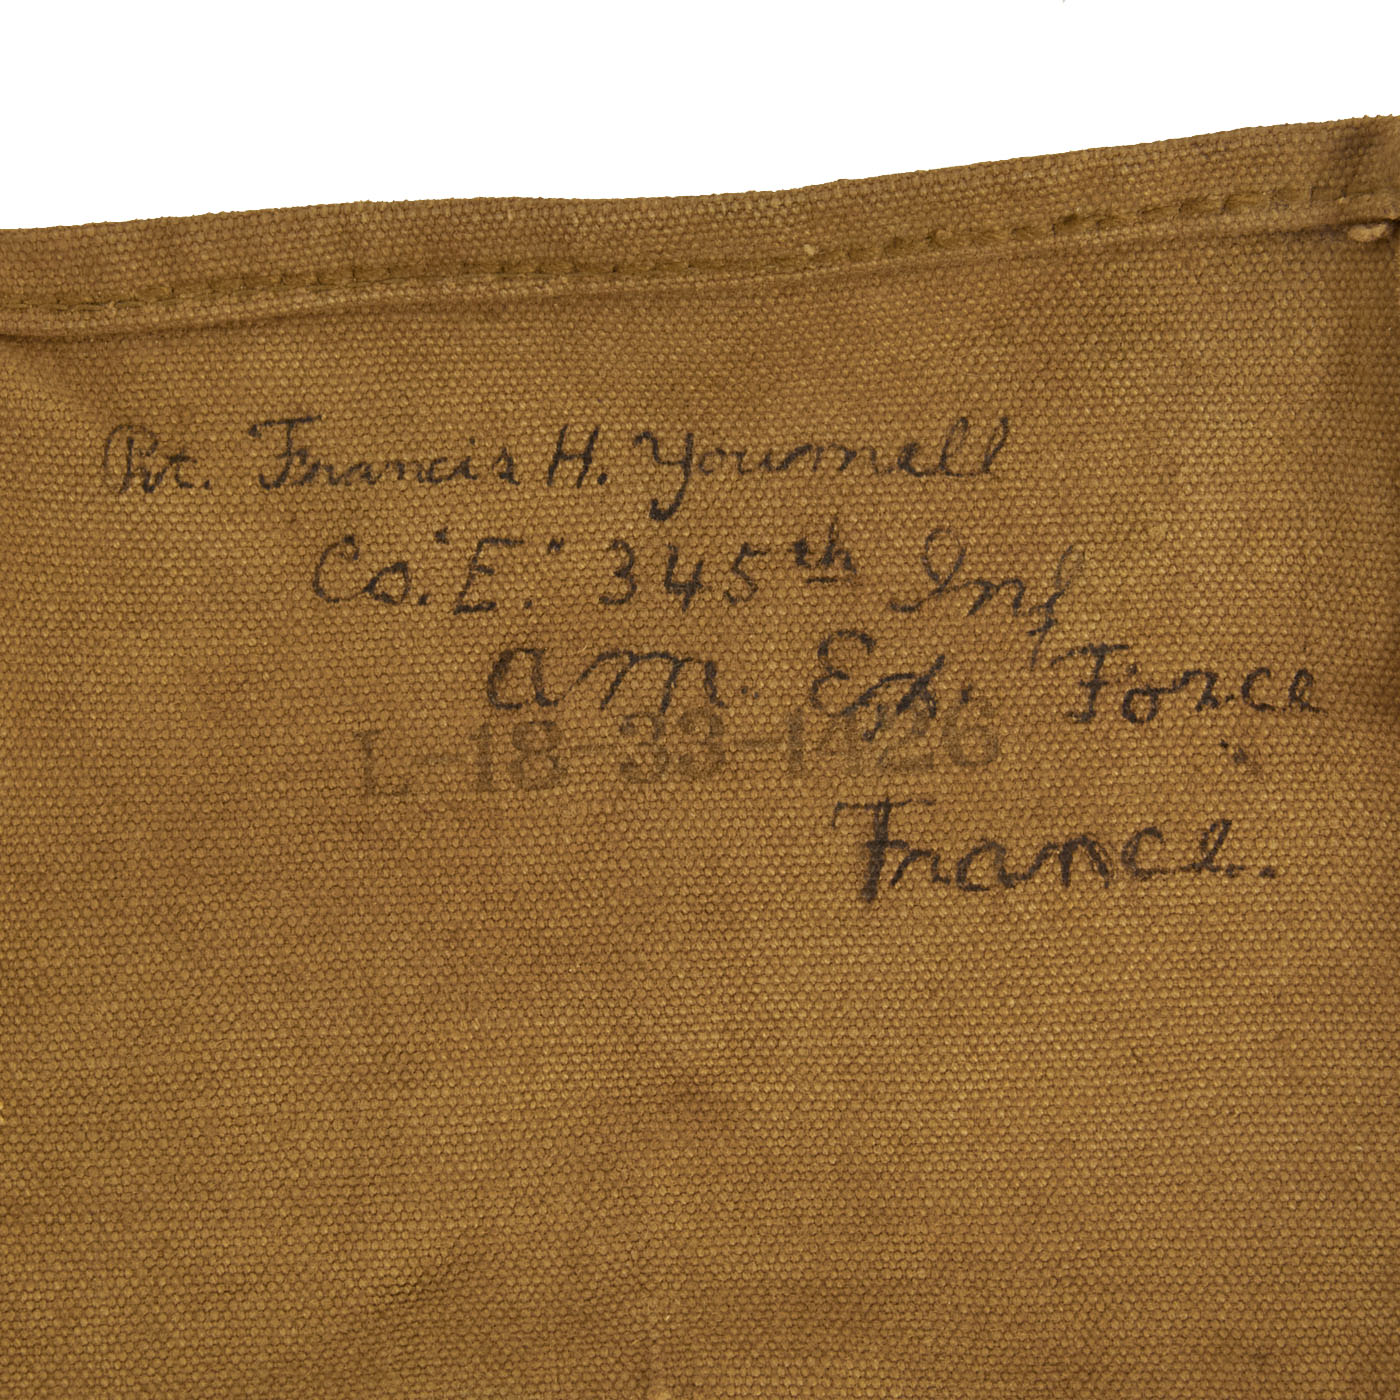 Pvt. Francis H. Youmell
Co. "E." 345th Inf
Am. Ex. Force
L-18-33-1426
France.